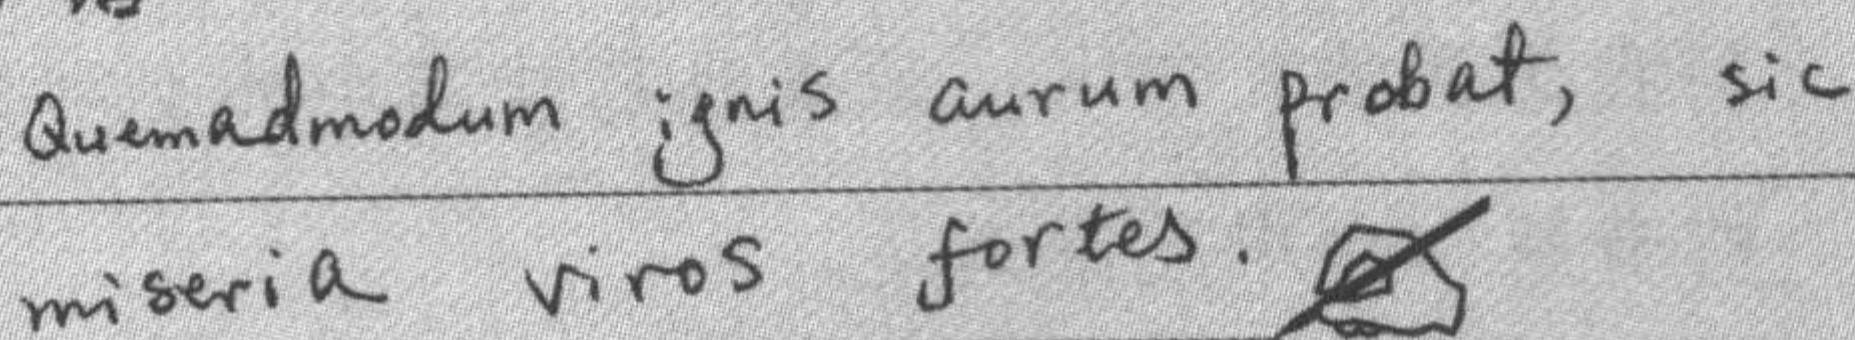 Quemadmodum ignis aurum probat, sic
miseria viros fortes.